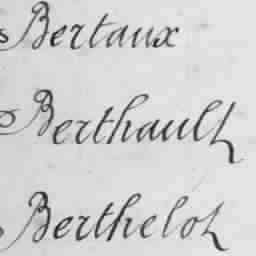 Bertaux
Berthault
Berthelot